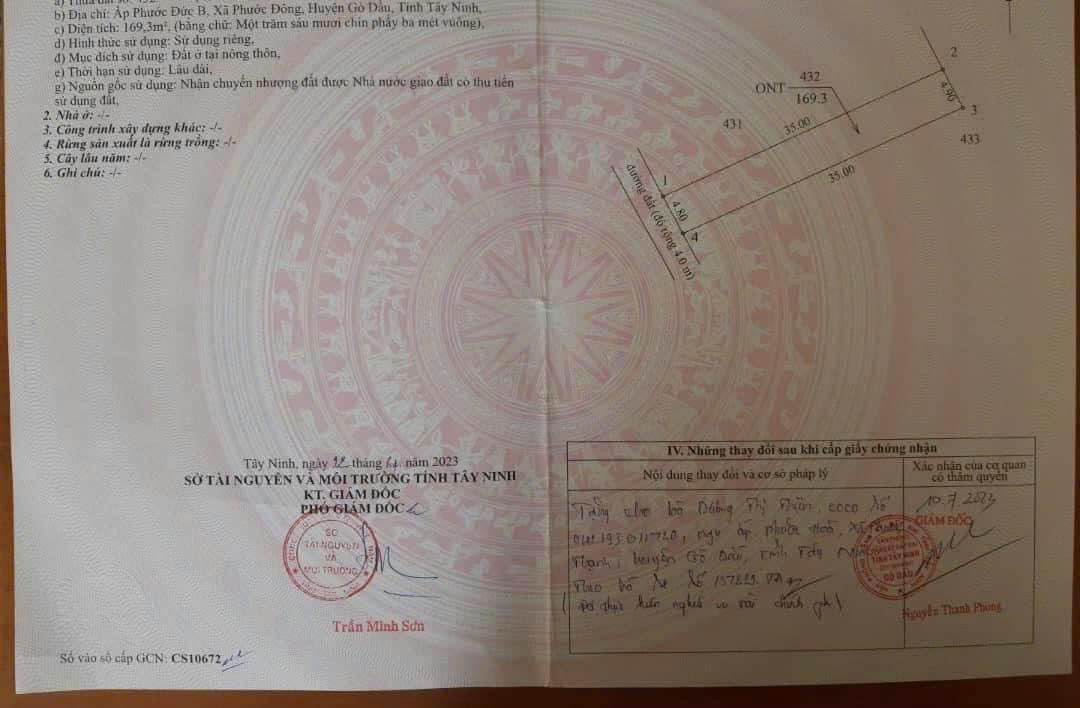 b) Địa chỉ: Ấp Phước Đức B, Xã Phước Đông, Huyện Gò Dầu, Tỉnh Tây Ninh,
c) Diện tích: 169,3m², (bằng chữ: Một trăm sáu mươi chín phẩy ba mét vuông),
d) Hình thức sử dụng: Sử dụng riêng,
đ) Mục đích sử dụng: Đất ở tại nông thôn,
e) Thời hạn sử dụng: Lâu dài,
g) Nguồn gốc sử dụng: Nhận chuyển nhượng đất được Nhà nước giao đất có thu tiền
sử dụng đất,
2. Nhà ở: -/-
3. Công trình xây dựng khác: -/-
4. Rừng sản xuất là rừng trồng: -/-
5. Cây lâu năm: -/-
6. Ghi chú: -/-
2
4.90
3
432
ONT
169.3
431
35.00
433
35.00
1
4.80
4
đường đất (độ rộng 4.0 m)
Tây Ninh, ngày tháng năm 2023
SỞ TÀI NGUYÊN VÀ MÔI TRƯỜNG TỈNH TÂY NINH
KT. GIÁM ĐỐC
PHÓ GIÁM ĐỐC
SỞ
TÀI NGUYÊN
VÀ
MÔI TRƯỜNG
Trần Minh Sơn
Số vào sổ cấp GCN: CS10672
IV. Những thay đổi sau khi cấp giấy chứng nhận
Nội dung thay đổi và cơ sở pháp lý
Xác nhận của cơ quan
có thẩm quyền
Tặng cho bà Thị CCCD số
ngụ ấp Phước
Thạnh, huyện Gò Dầu, tỉnh Tây Ninh
Theo hồ sơ số
thực hiện nghĩa vụ tài chính
10.7.2023
GIÁM ĐỐC
TỈNH TÂY NINH
GÒ DẦU
Nguyễn Thanh Phong